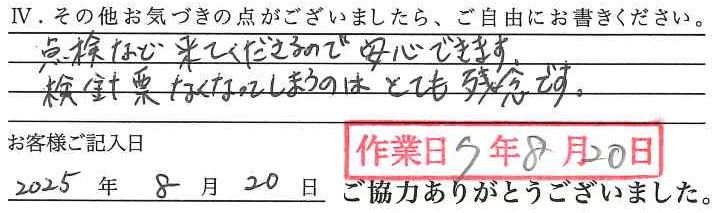 Ⅳ．その他お気づきの点がございましたら、ご自由にお書きください。
点検など来てくださるので安心できます。
検針票なくなってしまうのはとても残念です。
お客様ご記入日
作業日 7年8月20日
2025年8月20日
ご協力ありがとうございました。